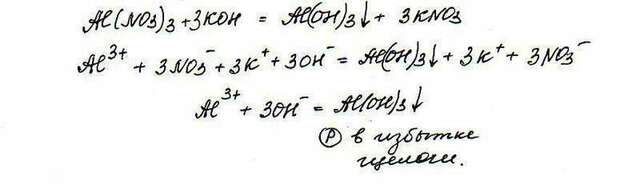 Al(NO₃)₃ + 3KOH = Al(OH)₃↓ + 3KNO₃
Al³⁺ + 3NO₃⁻ + 3K⁺ + 3OH⁻ = Al(OH)₃↓ + 3K⁺ + 3NO₃⁻
Al³⁺ + 3OH⁻ = Al(OH)₃↓
Ⓟ в избытке
щелочи.